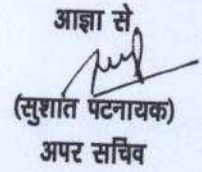 आज्ञा से
(सुशांत पटनायक)
अपर सचिव